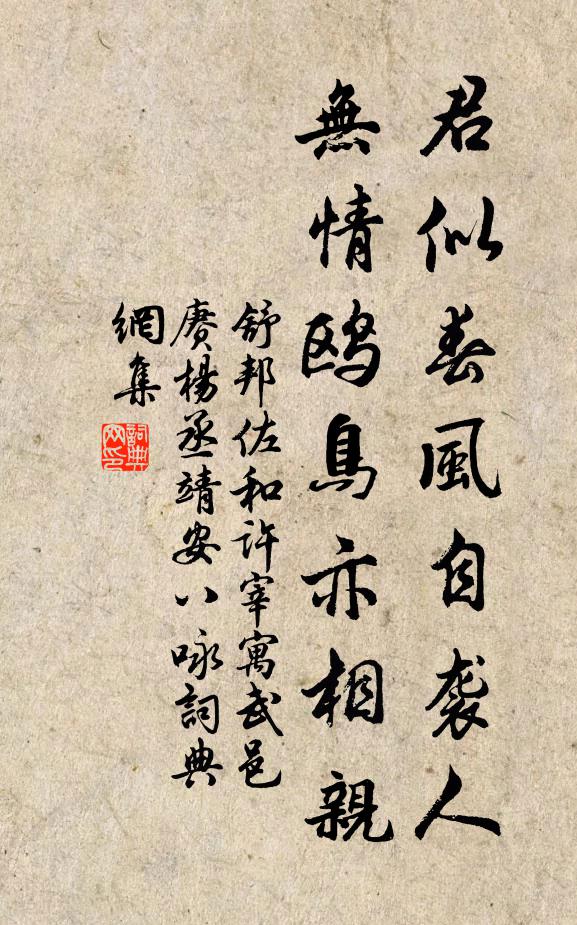 君似春風自袭人
無情鸥鳥亦相親
舒邦佐和許宰寓武邑
赓楊丞靖安八咏詞典
網集
詞典
网印